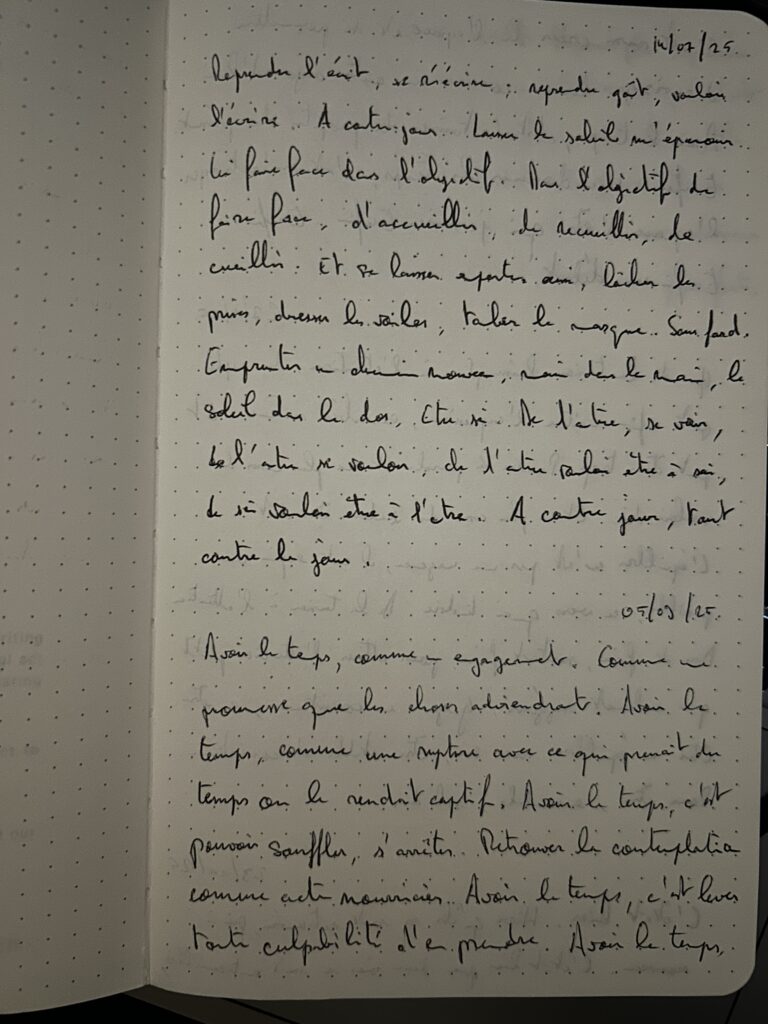 14/07/25
Reprendre l'écrit, se réécrire ; reprendre goût, vouloir
l'écrire. A contre-jour. Laisser le soleil m'épanouir.
Lui faire face dans l'objectif. Dans l'objectif de
faire face, d'accueillir, de recueillir, de
cueillir. Et se laisser emporter aussi, lâcher les
prises, dresser les voiles, tomber le masque. Sans fard.
Emprunter un chemin nouveau, main dans la main, le
soleil dans le dos. Etre soi. De l'autre, se voir,
de l'autre se vouloir, de l'autre vouloir être à soi,
de soi vouloir être à l'autre. A contre jour, tout
contre le jour.
05/09/25.
Avoir le temps, comme un engagement. Comme une
promesse que les choses adviendront. Avoir le
temps, comme une rupture avec ce qui prenait du
temps ou le rendait captif. Avoir le temps, c'est
pouvoir souffler, s'arrêter. Retrouver la contemplation
comme acte nourricier. Avoir le temps, c'est lever
toute culpabilité d'en prendre. Avoir le temps,